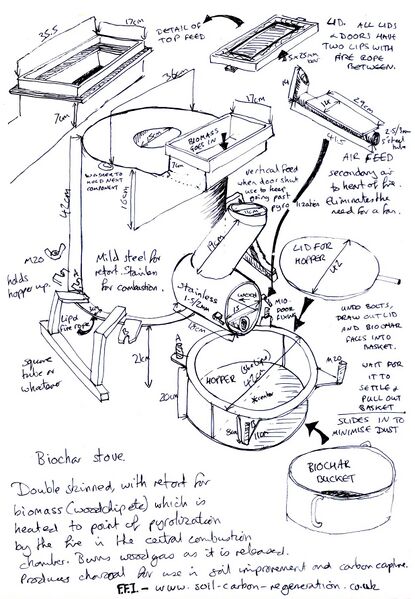 25.5
17cm
7cm
DETAIL OF
TOP FEED
LID. ALL LIDS
& DOORS HAVE
TWO LIPS WITH
FIRE ROPE
BETWEEN.
5x25mm
bar
36
15cm
WASHER TO
HOLD NEXT
COMPONENT
BIOMASS
GOES IN
17cm
7cm
14
14
29cm
41.5
2.5/3mm
5" steel
tube
AIR FEED
secondary air
to heart of fire.
Eliminates the
need for a fan.
vertical feed
when door shut
use to keep
going past
pyrolization
42cm
16cm
M20
holds
hopper up.
Mild steel for
retort. Stainless
for combustion.
19cm
11cm
Stainless
1.5/2mm
13
18cm
M10
DOOR
FIXING
LID FOR
HOPPER
42
Lip of
fire rope
square
tube or
whatever
21cm
20cm
A
HOPPER
42cm
M20
8cm
11cm
UNDO BOLTS,
DRAW OUT LID
AND BIOCHAR
FALLS INTO
BASKET.
WAIT FOR
IT TO
SETTLE &
PULL OUT
BASKET
SLIDES IN TO
MINIMISE DUST
BIOCHAR
BUCKET
Biochar stove
Double skinned, with retort for
biomass (woodchip etc) which is
heated to point of pyrolization
by the fire in the central combustion
chamber. Burns woodgas as it is released.
Produces charcoal for use in soil improvement and carbon capture.
F.F.I - www.soil-carbon-regeneration.co.uk